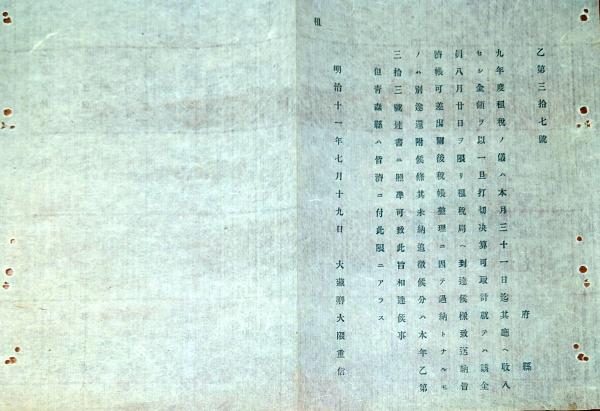 乙第三拾七號
府縣
九年度租稅ノ儀ハ本月三十一日迄其廳ヘ收入
セシ金額ヲ以一旦打切決算可取計就テハ該金
員八月廿日ヲ限リ租稅局ヘ到達候樣致送納皆
濟帳可差出爾後稅帳整理ニ因テ過納トナルモ
ノハ別途還附候條其未納追徵候分ハ本年乙第
三拾三號達書ニ照準可致此旨相達候事
但靑森縣ハ皆濟ニ付此限ニアラス
明治十一年七月十九日 大藏卿大隈重信
租